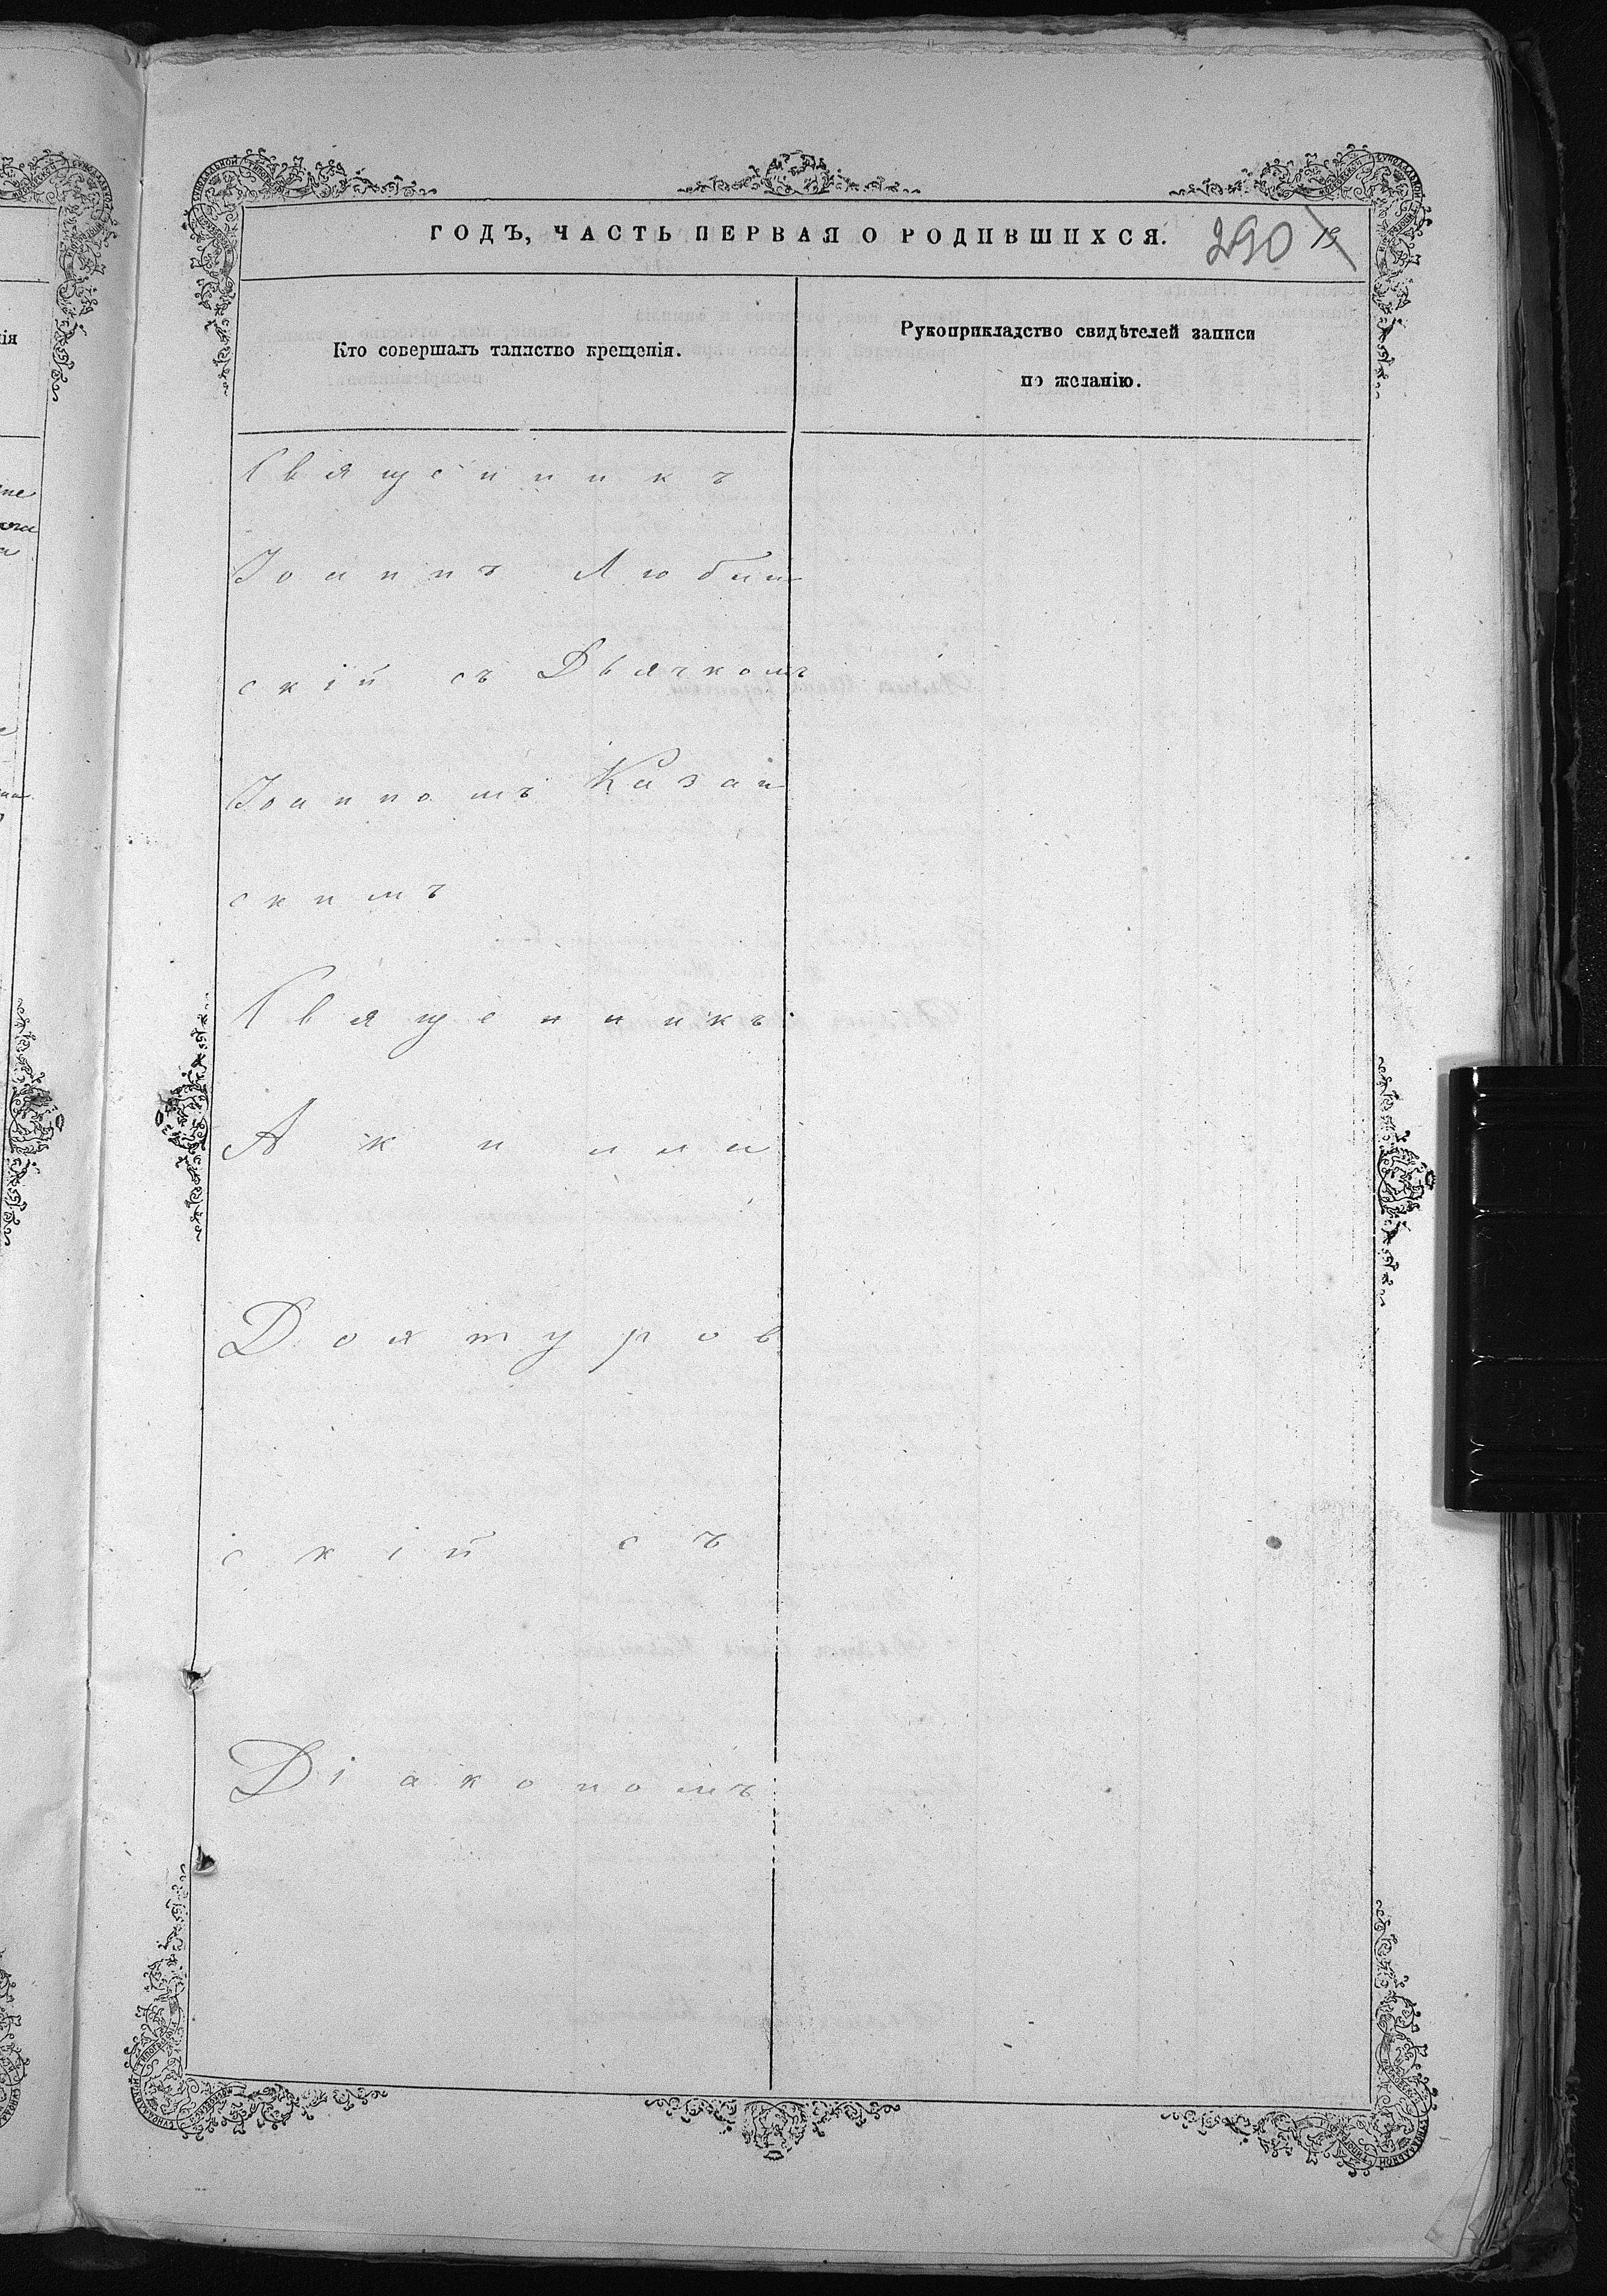 ГОДЪ, ЧАСТЬ ПЕРВАЯ О РОДИВШИХСЯ.
290 19
Кто совершалъ таинство крещенія.
Рукоприкладство свидѣтелей записи
по желанію.
Священникъ
Іоаннъ Любин
скій съ Дьячкомъ
Іоанномъ Казан
скимъ
Священникъ
скій съ
Діакономъ